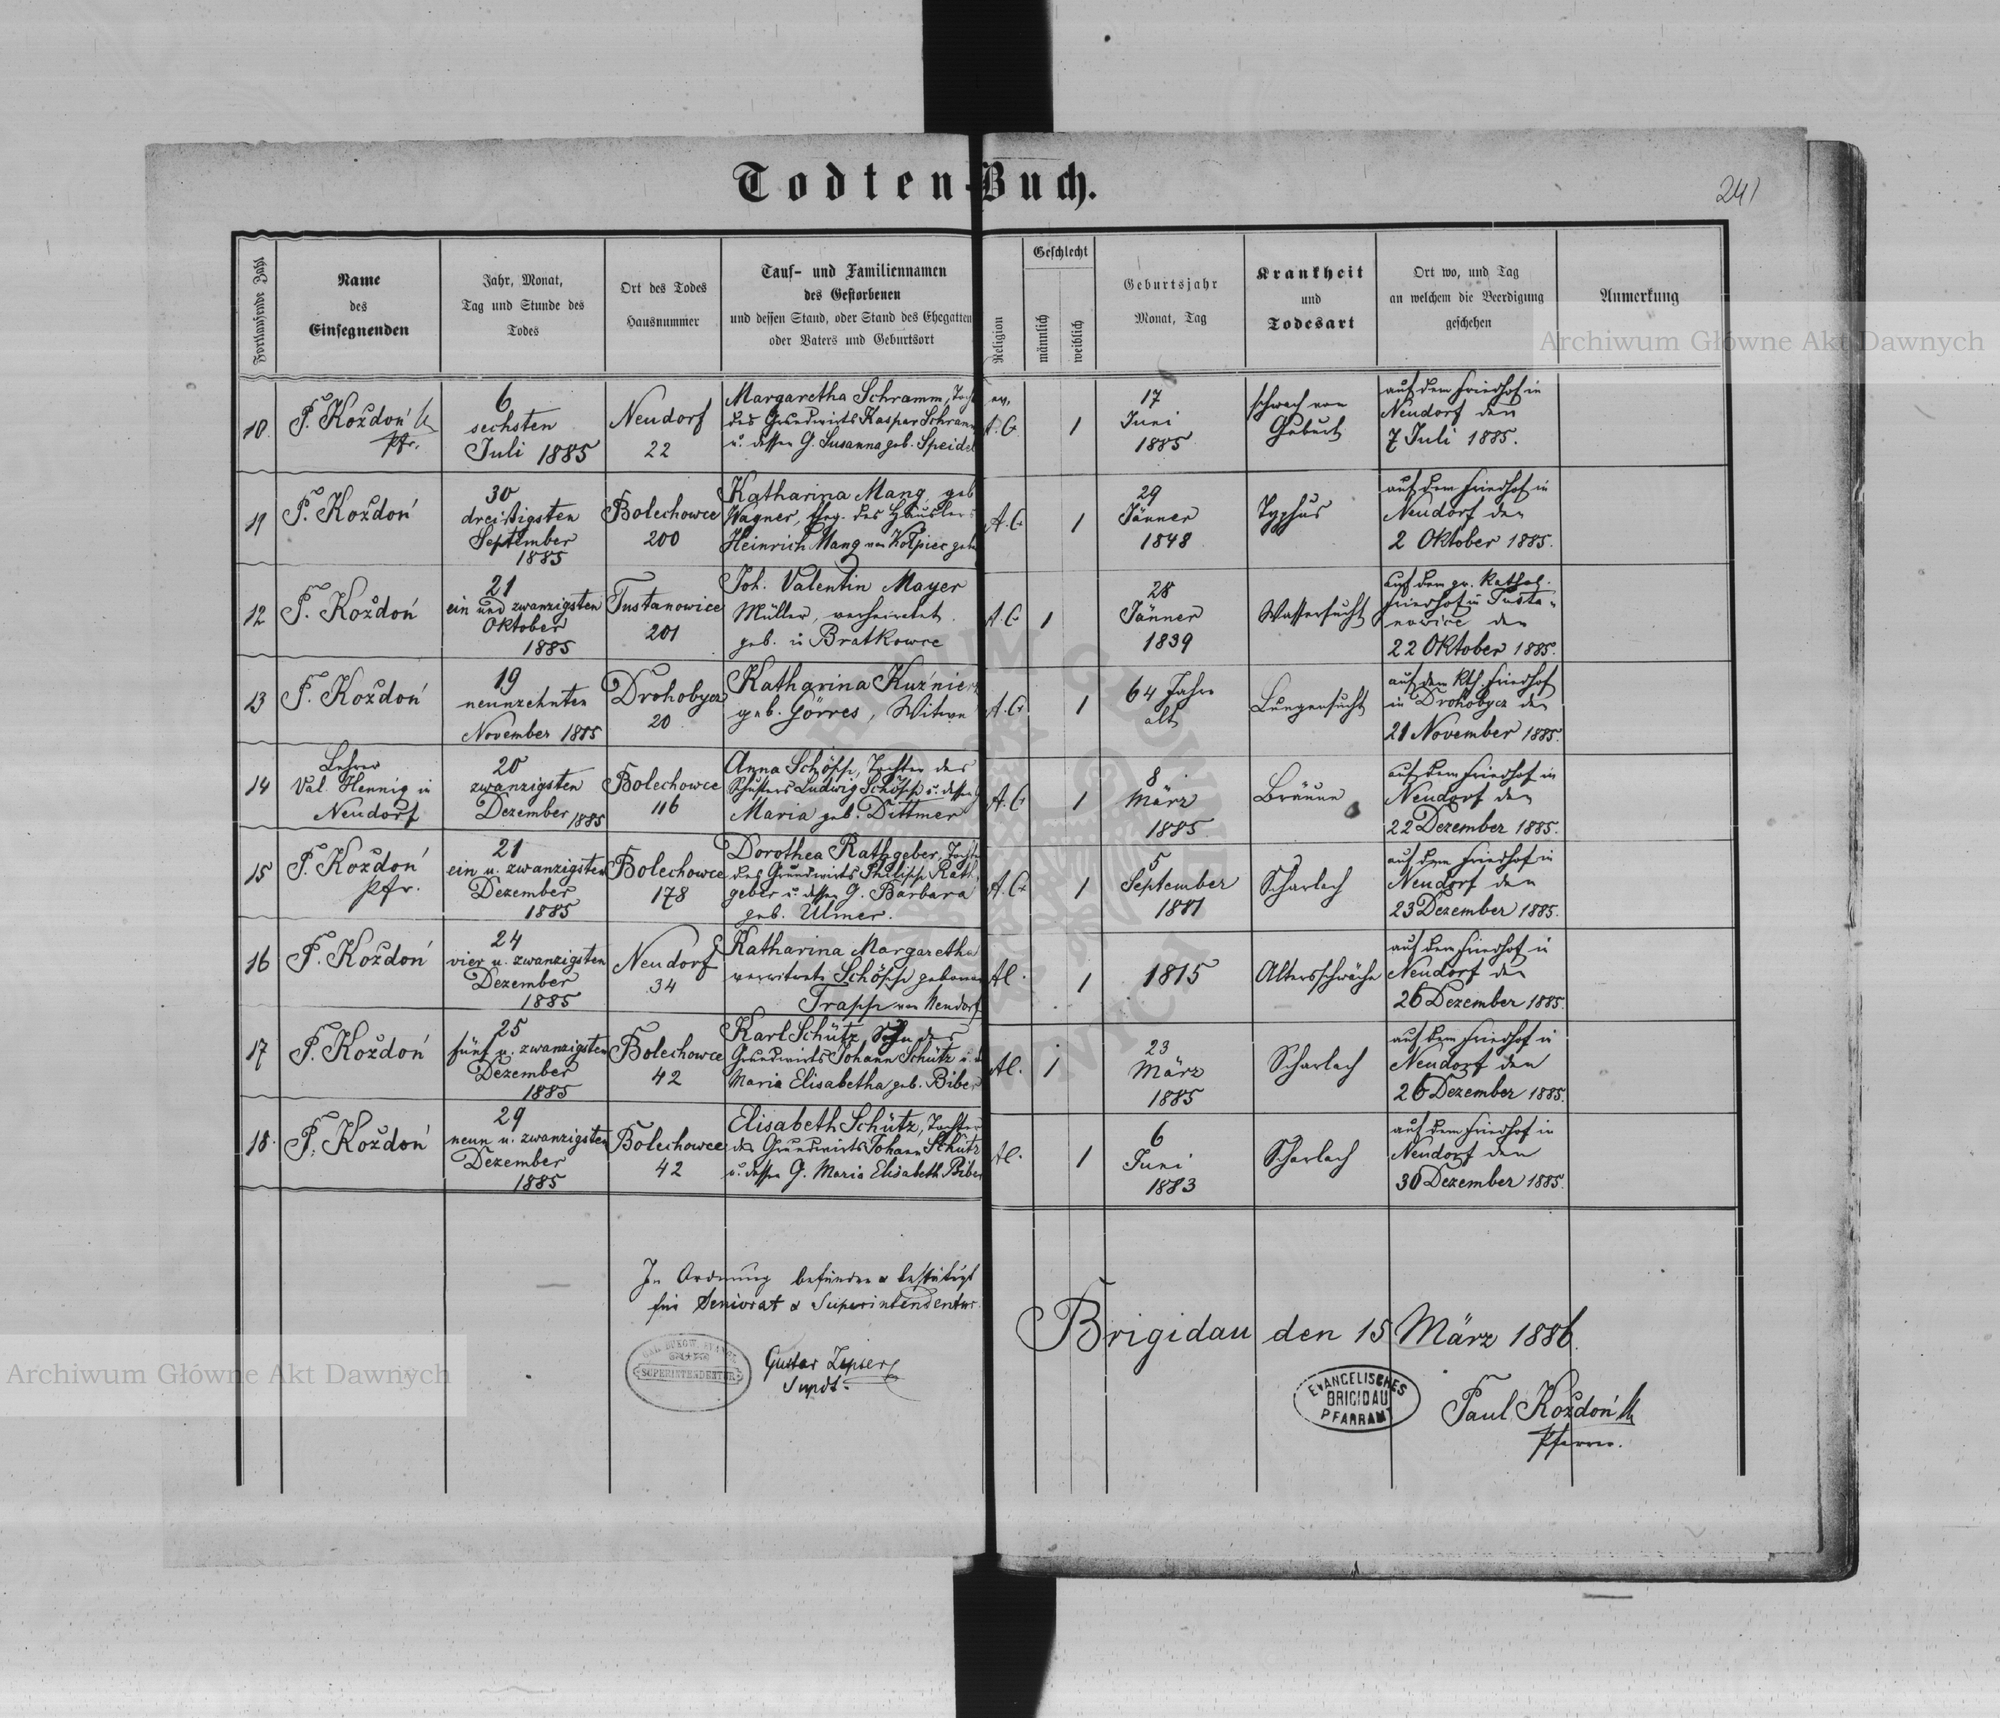 Todten-Buch.
241
Fortlaufende Zahl
Name
des
Einsegnenden
Jahr, Monat,
Tag und Stunde des
Todes
Ort des Todes
Hausnummer
Tauf- und Familiennamen
des Gestorbenen
und dessen Stand, oder Stand des Ehegatten
oder Vaters und Geburtsort
Religion
Geschlecht
männlich
weiblich
Geburtsjahr
Monat, Tag
Krankheit
und
Todesart
Ort wo, und Tag
an welchem die Beerdigung
geschehen
Anmerkung
10.
P. Kożdoń
Pfr.
6
sechsten
Juli 1885
Neudorf
22
Margaretha Schramm, Tocht
des Grundwirts Kaspar Schramm
u. dessen G. Susanna geb. Speidel
ev.
A.C.
1
17
Juni
1885
schwach von
Geburt
auf dem Friedhof in
Neudorf den
7 Juli 1885.
11
P. Kożdoń
30
dreißigsten
September
1885
Bolechowce
200
Katharina Mang, geb
Wagner, Eheg. des Häuslers
Heinrich Mang von Kolpiec geb
A.C
1
29
Jänner
1848
Typhus
auf dem Friedhof in
Neudorf den
2 Oktober 1885.
12
P. Kożdoń
21
ein und zwanzigsten
Oktober
1885
Tustanowice
201
Joh. Valentin Mayer
Müller, verheiratet.
geb. in Bratkowce
A.C
1
28
Jänner
1839
Wassersucht
auf dem gr. Kathol.
Friedhof in Tusta-
nowice den
22 Oktober 1885.
13
P. Kożdoń
19
neunzehnten
November 1885
Drohobycz
20
Katharina Kuźnier
geb. Görres, Witwe
A.C
1
64 Jahre
alt
Lungensucht
auf dem Kth. Friedhof
in Drohobycz den
21 November 1885.
14
Lehrer
Val. Hennig in
Neudorf
20
zwanzigsten
Dezember 1885
Bolechowce
116
Anna Schöpp, Tochter des
Schusters Ludwig Schöpp u. dessen G
Maria geb. Dittmer
A.C
1
8
März
1885
Bräune
auf dem Friedhof in
Neudorf den
22 Dezember 1885.
15
P. Kożdoń
Pfr.
21
ein u. zwanzigsten
Dezember
1885
Bolechowce
178
Dorothea Rathgeber, Tochte
des Grundwirts Philipp Rath
geber u. dessen G. Barbara
geb. Ulmer.
A.C
1
5
September
1881
Scharlach
auf dem Friedhof in
Neudorf den
23 Dezember 1885.
16
P. Kożdoń
24
vier u. zwanzigsten
Dezember
1885
Neudorf
34
Katharina Margaretha
verwitwete Schöpp geborene
Trapp von Neudorf
Al.
1
1815
Altersschwäche
auf dem Friedhof in
Neudorf den
26 Dezember 1885.
17
P. Kożdoń
25
fünf u. zwanzigsten
Dezember
1885
Bolechowce
42
Karl Schütz Sohn des
Grundwirts Johann Schütz u. d
Maria Elisabetha geb. Biber
Al.
1
23
März
1885
Scharlach
auf dem Friedhof in
Neudorf den
26 Dezember 1885.
18.
P. Kożdoń
29
neun u. zwanzigsten
Dezember
1885
Bolechowce
42
Elisabeth Schütz, Tochter
des Grundwirts Johann Schütz
u. dessen G. Maria Elisabeth Biber
Al.
1
6
Juni
1883
Scharlach
auf dem Friedhof in
Neudorf den
30 Dezember 1885.
In Ordnung befunden & bestätigt
für Seniorat & Superintendentur.
SUPERINTENDENTUR
Gustav Zipser
Supdt.
Brigidau den 15 März 1886.
EVANGELISCHES
BRIGIDAU
PFARRAMT
Paul Kożdoń
Pfarrer.
Archiwum Główne Akt Dawnych
Archiwum Główne Akt Dawnych